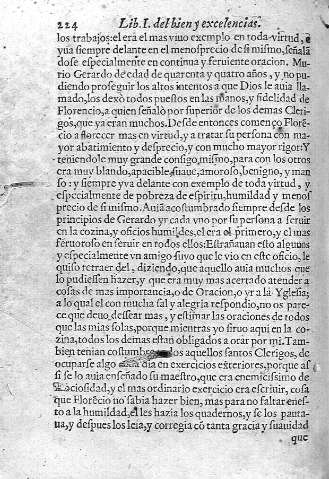 224 Lib. I. del bien y excelencias.
los trabajos: el era el mas viuo exemplo en toda virtud, e
yua siempre delante en el menosprecio de si mismo, señalā
dose especialmente en continua y feruiente oracion. Mu-
rio Gerardo de edad de quarenta y quatro años, y no pu-
diendo proseguir los altos intentos a que Dios le auia lla-
mado, los dexò todos puestos en las manos, y fidelidad de
Florencio, a quien señalò por superior de los demas Cleri-
gos, que ya eran muchos. Desde entonces començo Florē-
cio a florecer mas en virtud, y a tratar su persona con ma-
yor abatimiento y desprecio, y con mucho mayor rigor: Y
teniendole muy grande consigo mismo, para con los otros
era muy blando, apacible, suaue, amoroso, benigno, y man
so: y siempre yva delante con exemplo de toda virtud, y
especialmente de pobreza de espiritu, humildad y menos
precio de si mismo. Auia acostumbrado siempre desde los
principios de Gerardo yr cada vno por su persona a seruir
en la cozina, y oficios humildes, el era el primero, y el mas
feruoroso en seruir en todos ellos: Estrañauan esto algunos
y especialmente vn amigo suyo que le vio en este oficio, le
quiso retraer del, diziendo, que aquello auia muchos que
lo pudiessen hazer, y que era muy mas acertado atender a
cosas de mas importancia, o de Oracion, o yr a la Yglesia;
a lo qual el con mucha sal y alegria respondio, no os pare-
ce que deuo dessear mas, y estimar las oraciones de todos
que las mias solas, porque mientras yo siruo aqui en la co-
zina, todos los demas estan obligados a orar por mi. Tam-
bien tenian costumbre los aquellos santos Clerigos, de
ocuparse algo dia en exercicios exteriores, porque as-
si se lo auia enseñado su maestro, que era enemicissimo de
la ociosidad, y el mas ordinario exercicio era escriuir, cosa
que Florēcio no sabia hazer bien, mas para no faltar en es-
to a la humildad, el les hazia los quadernos, y se los pauta-
ua, y despues los leia, y corregia cō tanta gracia y suauidad
que